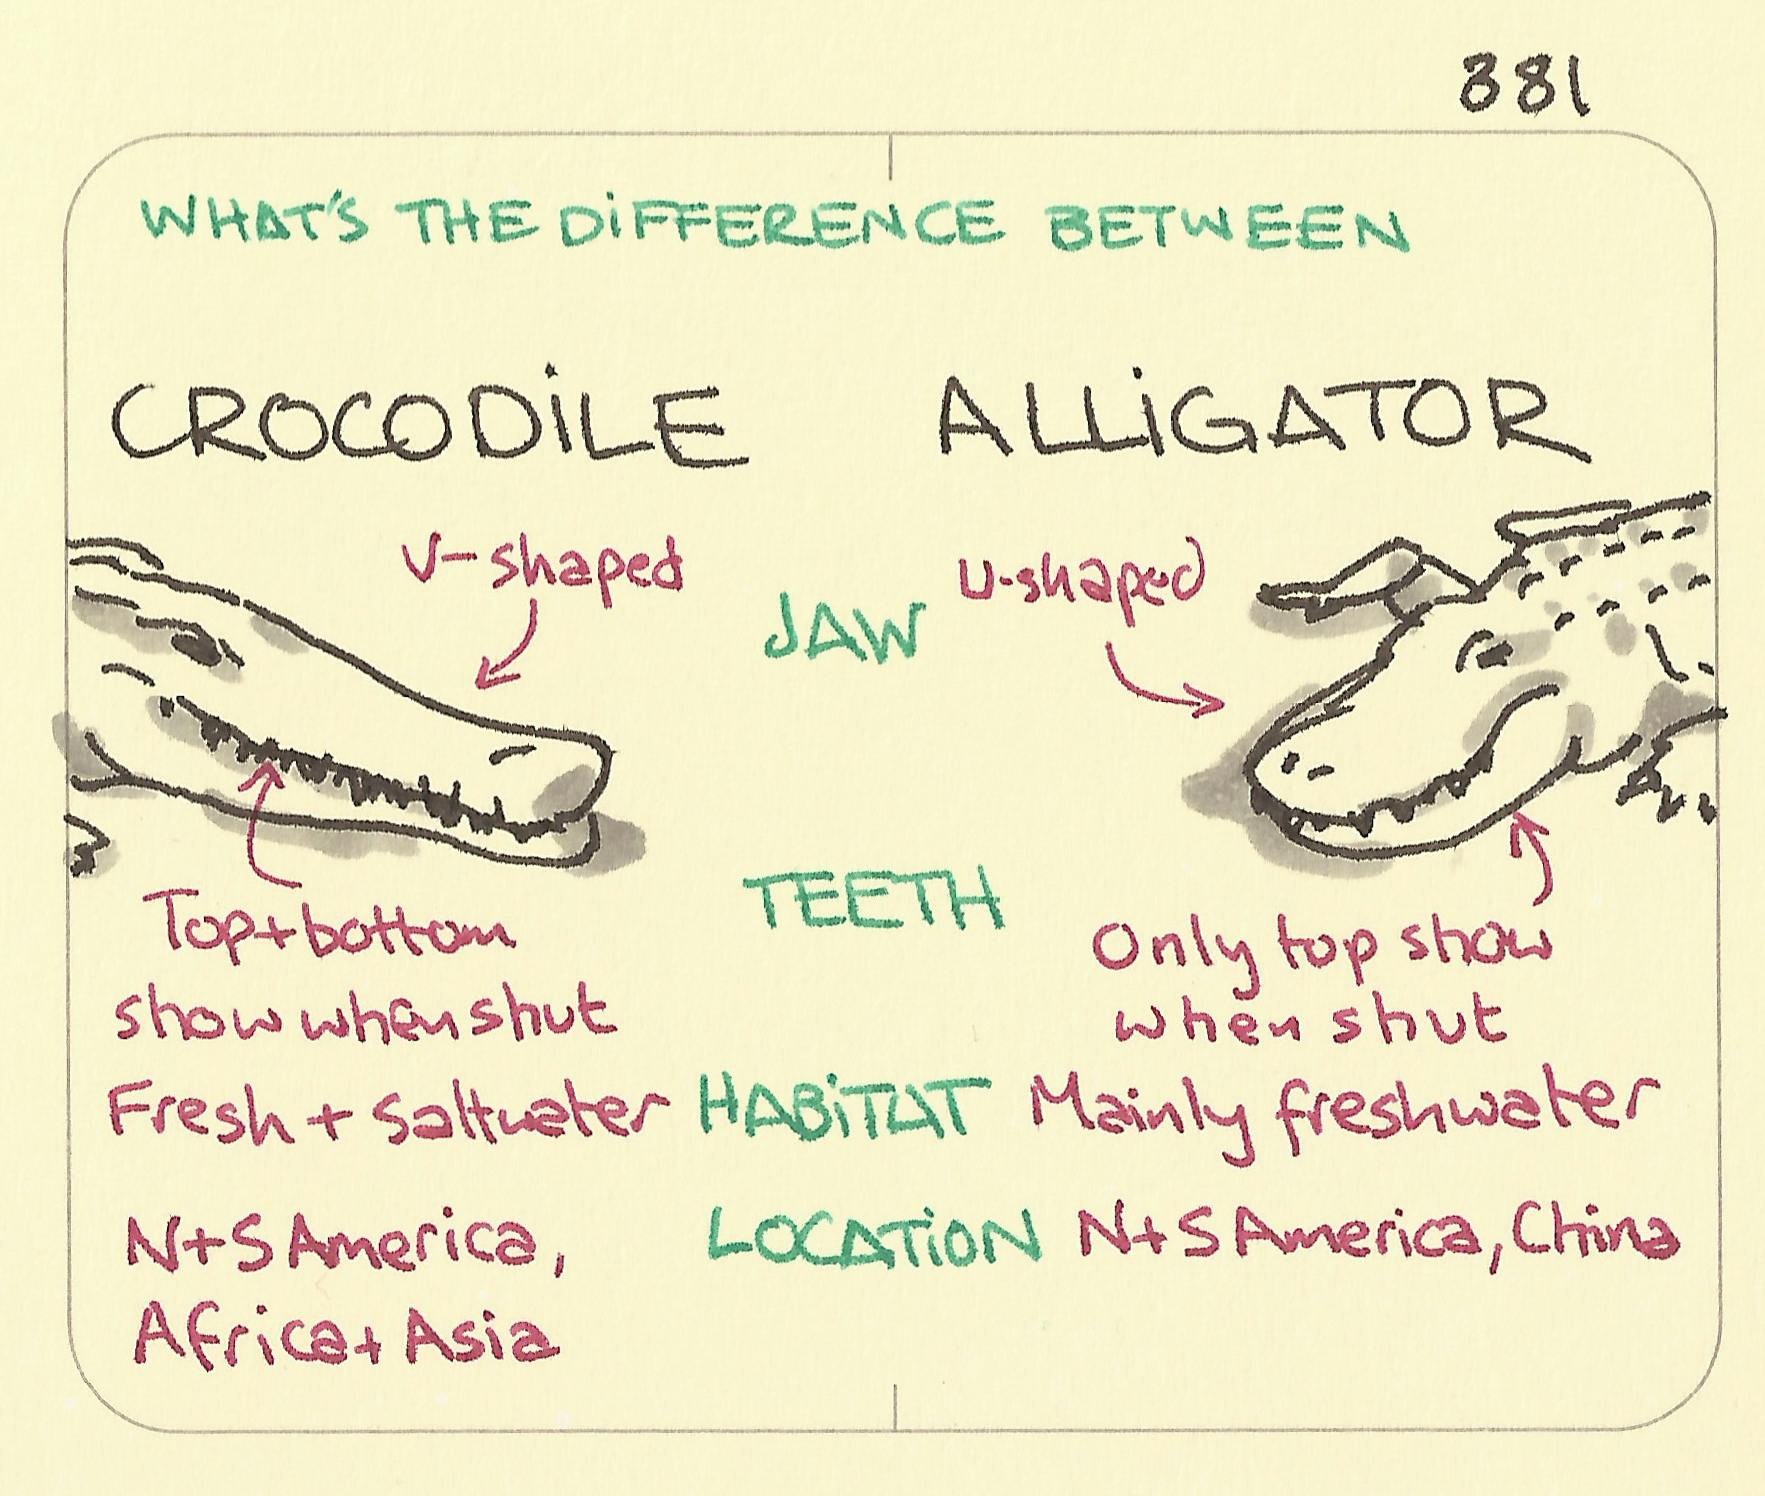 381
WHAT'S THE DIFFERENCE BETWEEN
CROCODILE ALLIGATOR
V-shaped
JAW
U-shaped
TEETH
Top+bottom
show when shut
Only top show
when shut
Fresh + Saltwater HABITAT Mainly freshwater
N+S America,
Africa+ Asia
LOCATION N+S America, China